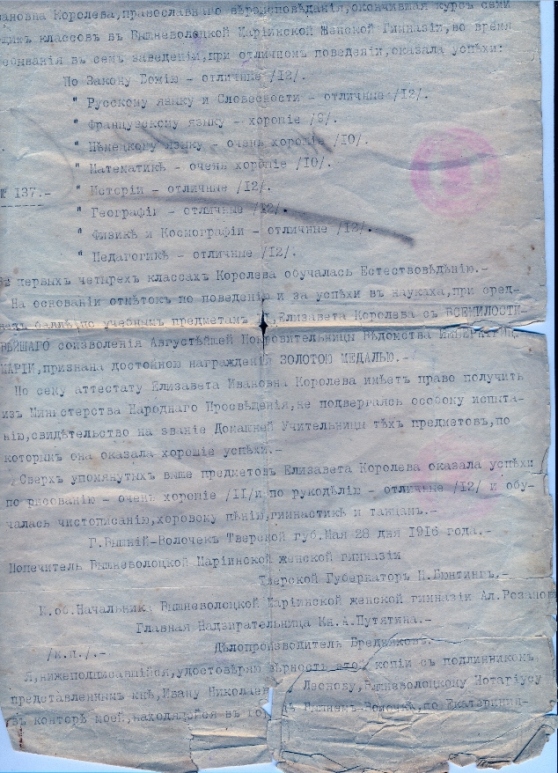 ановна Королева, православнаго вѣроисповѣданія, окончившая курсъ семи
классовъ въ Вышневолоцкой Маріинской Женской Гимназіи, во время
пребыванія въ семъ заведеніи, при отличномъ поведеніи, оказала успѣхи:
По Закону Божію - отличные /12/.
" Русскому языку и Словесности - отличные /12/.
" Французскому языку - хорошіе /9/.
" Нѣмецкому языку - очень хорошіе /10/.
" Математикѣ - очень хорошіе /10/.
№ 137.- " Исторіи - отличные /12/.
" Географіи - отличные /12/.
" Физикѣ и Космографіи - отличные /12/.
" Педагогикѣ - отличные /12/.
первыхъ четырехъ классахъ Королева обучалась Естествовѣдѣнію.-
На основаніи отмѣтокъ по поведенію и за успѣхи въ наукахъ, при сред-
баллѣ по учебнымъ предметамъ Елизавета Королева съ ВСЕМИЛОСТИ-
ВѢЙШАГО соизволенія Августѣйшей Покровительницы Вѣдомства ИМПЕРАТРИЦЫ
МАРІИ, признана достойною награжденія ЗОЛОТОЮ МЕДАЛЬЮ.-
По сему аттестату Елизавета Ивановна Королева имѣетъ право получить
изъ Министерства Народнаго Просвѣщенія, не подвергаясь особому испыта-
нію, свидѣтельство на званіе Домашней Учительницы тѣхъ предметовъ, по
которымъ она оказала хорошіе успѣхи.-
Сверхъ упомянутыхъ выше предметовъ Елизавета Королева оказала успѣхи
по рисованію - очень хорошіе /11/ и по рукодѣлію - отличные /12/ и обу-
чалась чистописанію, хоровому пѣнію, гимнастикѣ и танцамъ.-
Г. Вышній-Волочекъ Тверской губ. Мая 28 дня 1916 года.-
Попечитель Вышневолоцкой Маріинской женской гимназіи
Тверской Губернаторъ Н. Бюнтингъ.-
И. об. Начальника Вышневолоцкой Маріинской женской гимназіи Ал. Розанов
Главная Надзирательница Кн. А. Путятина.-
/М.П./.- Дѣлопроизводитель Бредниковъ.
Я, нижеподписавшійся, удостовѣряю вѣрность этой копіи съ подлинникомъ
представленнымъ мнѣ, Ивану Николаев Леонову, Вышневолоцкому Нотаріусу
въ конторѣ моей, находящейся въ го Вышнемъ Волочкѣ, по Екатеринин-